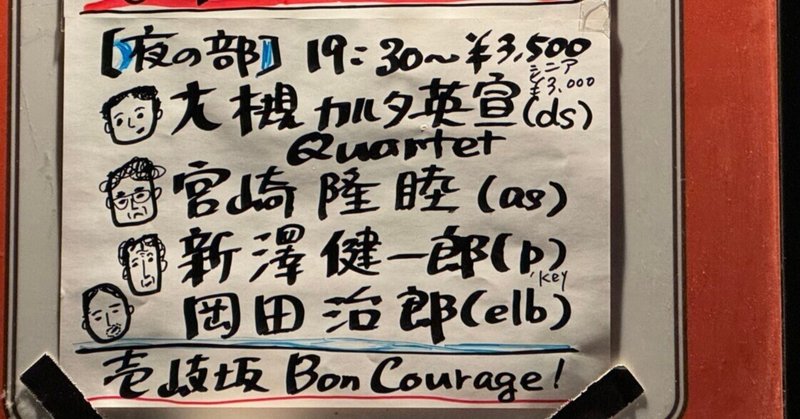 【夜の部】 19:30〜¥3,500
シニア
¥3,000
大槻カルタ英宣(ds)
Quartet
宮崎隆睦(as)
新澤健一郎(p)
key
岡田治郎(elb)
壱岐坂 Bon Courage!